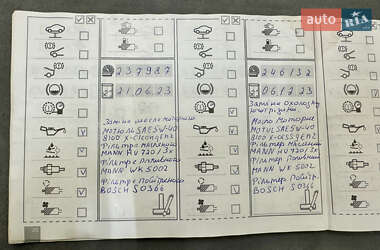 auto RIA
237987
21.06.23
Заміна масла моторного
MOTUL SAE5W-40
8100 X-CLEAN
Фільтр масляний
MANN HU 720/3x
Фільтр паливний
MANN WK 5002
Фільтр повітряний
BOSCH S0366
246132
06.12.23
Заміна охолодж.
Масло моторне
MOTUL SAE5W-40
8100 X-
Фільтр масляний
MANN HU 720/3x
Фільтр паливний
MANN WK 5002
Фільтр повітряний
BOSCH S0366